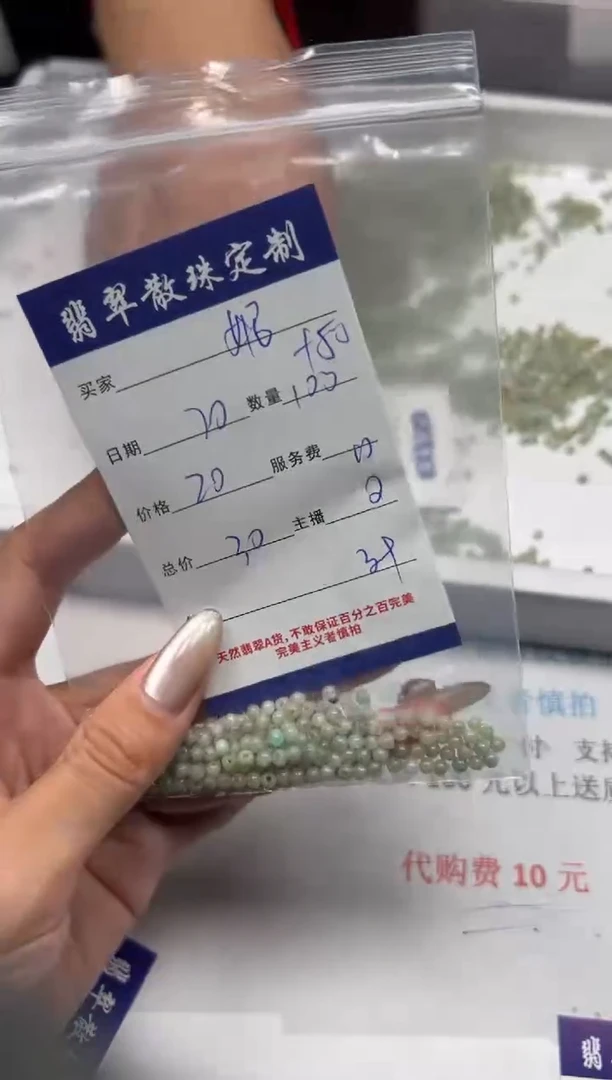 翡翠散珠定制
买家 妮
+50
日期 20 数量 100
价格 20 服务费
总价 30 主播 2
天然翡翠A货,不敢保证百分之百完美
完美主义者慎拍
者慎拍
付 支持
元以上送
代购费 10 元
翡翠散
翡